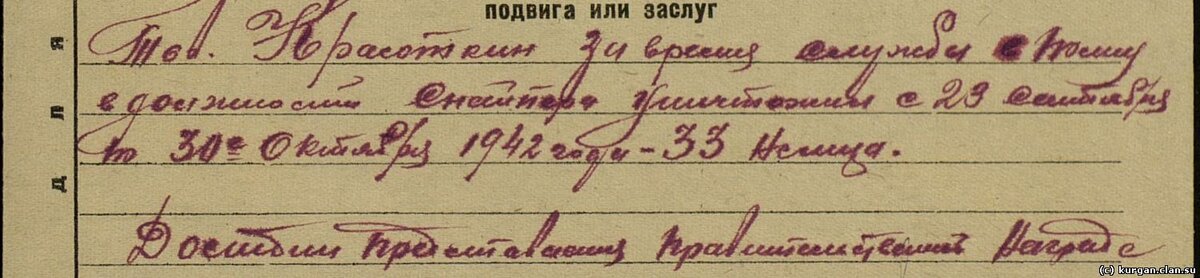 подвига или заслуг
Тов. Красоткин За время службы в полку
в должности Снайпера Уничтожил с 23 сентября
по 30е Октября 1942 года - 33 Немца.
Достоин представления правительственной Награде
для
(c) kurgan.clan.su